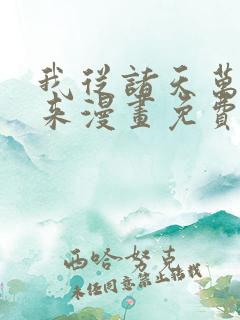 我從諸天萬
來漫畫免費
西哈努克
未经同意禁止转载